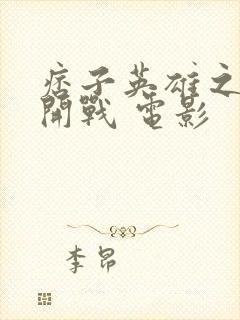 痞子英雄之
開戰 電影
李昂